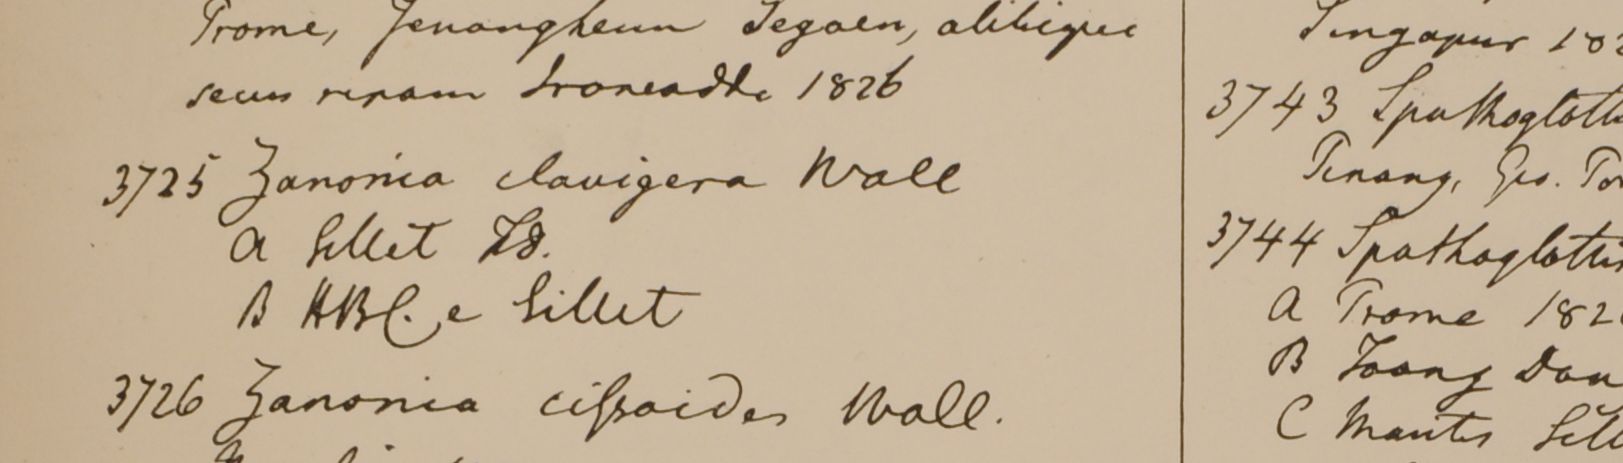 Prome, Yenangheun Segaen, alibique
secus ripam Irawaddi 1826
3725 Zanonia clavigera Wall
A Sillet FD.
B HBC. e Sillet
3726 Zanonia cissoides Wall.
Singapur 182
3743 Spathoglotti
Pinang, Geo. Por
3744 Spathoglottis
A Prome 182
B Toong Dou
C Montis Sill